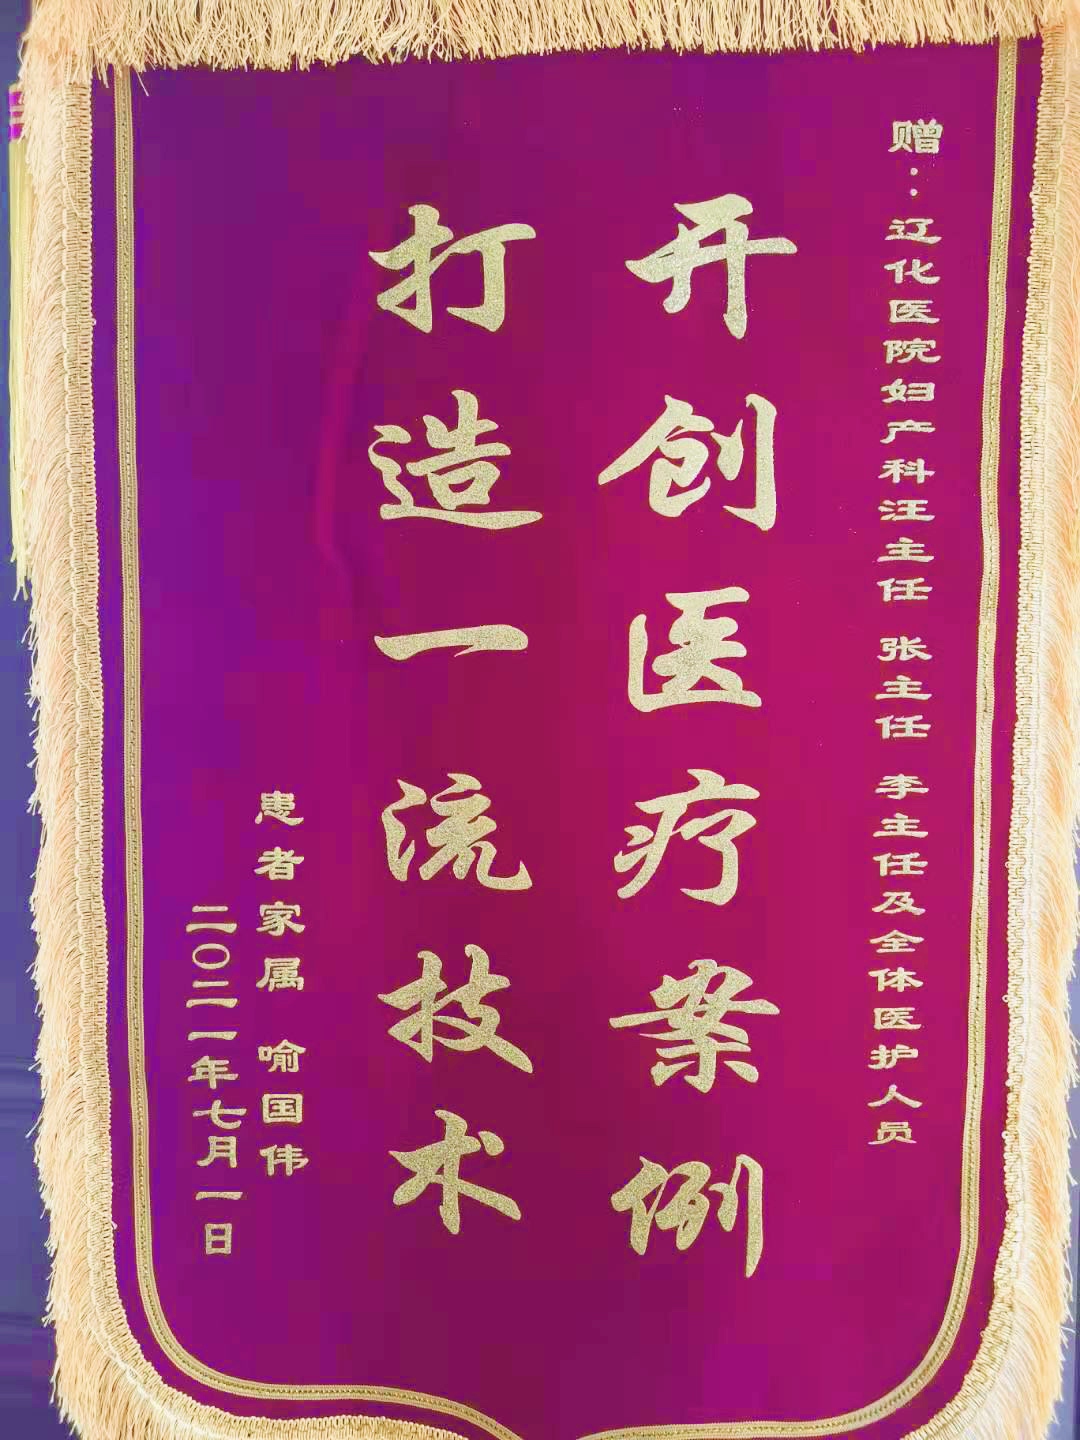 赠：辽化医院妇产科汪主任 张主任 李主任及全体医护人员
开创医疗案例
打造一流技术
患者家属 喻国伟
二〇二一年七月一日